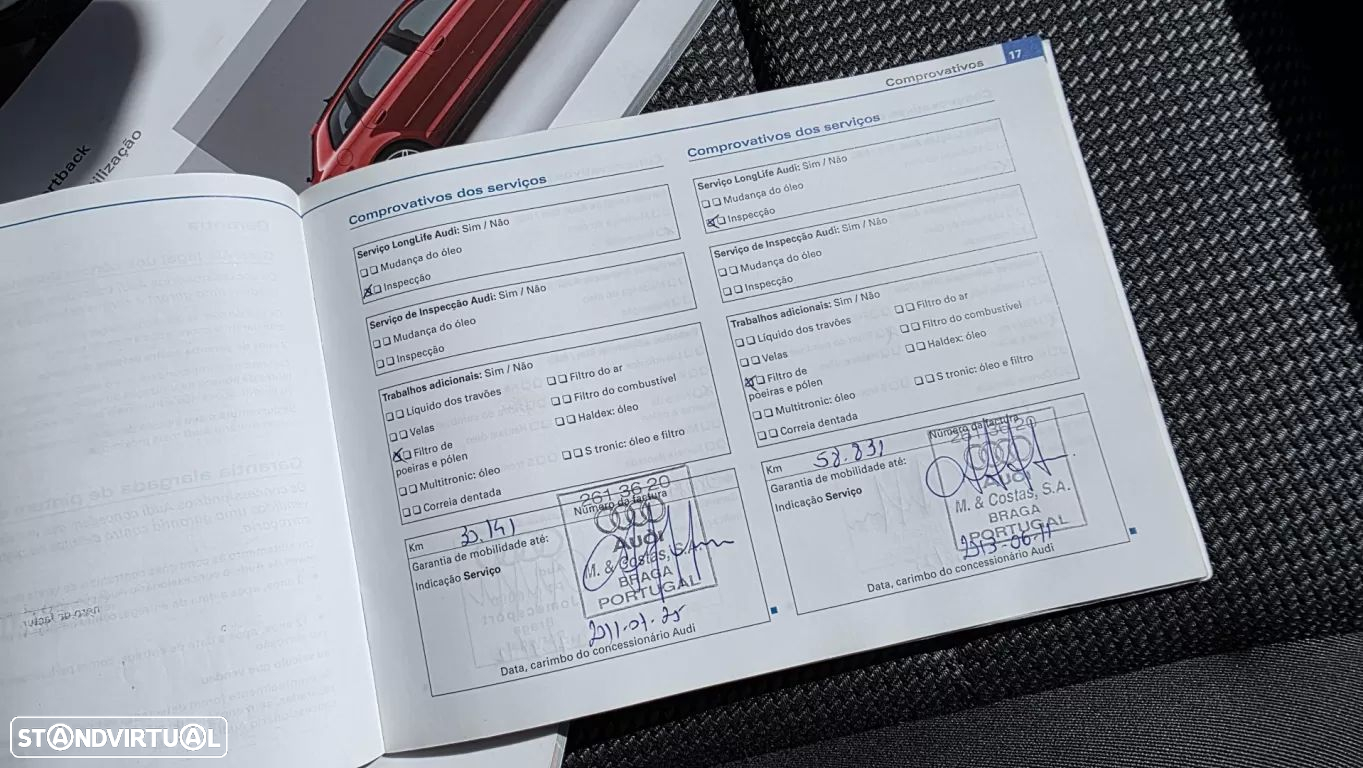 rtback
ilização
Comprovativos
17
Comprovativos dos serviços
Serviço LongLife Audi: Sim / Não
Mudança do óleo
Inspecção
Serviço de Inspecção Audi: Sim / Não
Mudança do óleo
Inspecção
Trabalhos adicionais: Sim / Não
Líquido dos travões
Velas
Filtro de
poeiras e pólen
Multitronic: óleo
Correia dentada
Filtro do ar
Filtro do combustível
Haldex: óleo
S tronic: óleo e filtro
Km
Número da factura
261 36 20
Garantia de mobilidade até:
Indicação Serviço
AUDI
M. & Costas, S.A.
BRAGA
PORTUGAL
Data, carimbo do concessionário Audi
Comprovativos dos serviços
Serviço LongLife Audi: Sim / Não
Mudança do óleo
Inspecção
Serviço de Inspecção Audi: Sim / Não
Mudança do óleo
Inspecção
Trabalhos adicionais: Sim / Não
Líquido dos travões
Velas
Filtro de
poeiras e pólen
Multitronic: óleo
Correia dentada
Filtro do ar
Filtro do combustível
Haldex: óleo
S tronic: óleo e filtro
Km 58.831
Número da factura
261 36 20
Garantia de mobilidade até:
Indicação Serviço
AUDI
M. & Costas, S.A.
BRAGA
PORTUGAL
Data, carimbo do concessionário Audi
STANDVIRTUAL